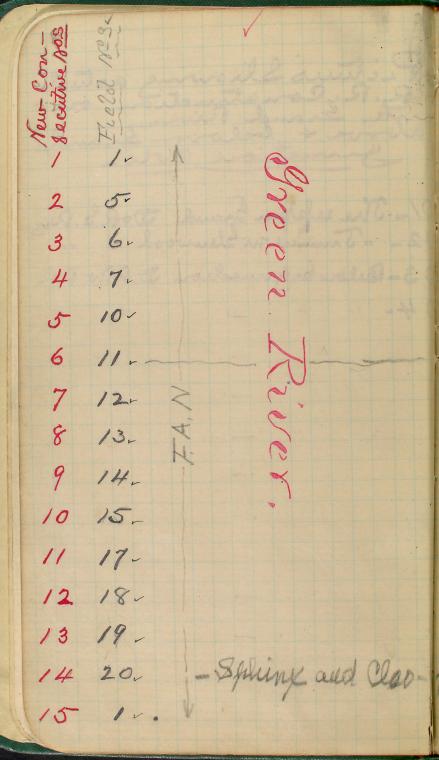 New Con-
secutive Nos
Field Nos.
1 1
2 5
3 6
4 7
5 10
6 11
7 12
8 13
9 14
10 15
11 17
12 18
13 19
14 20
15 1.
F.A.N
Green River.
- Sphinx and